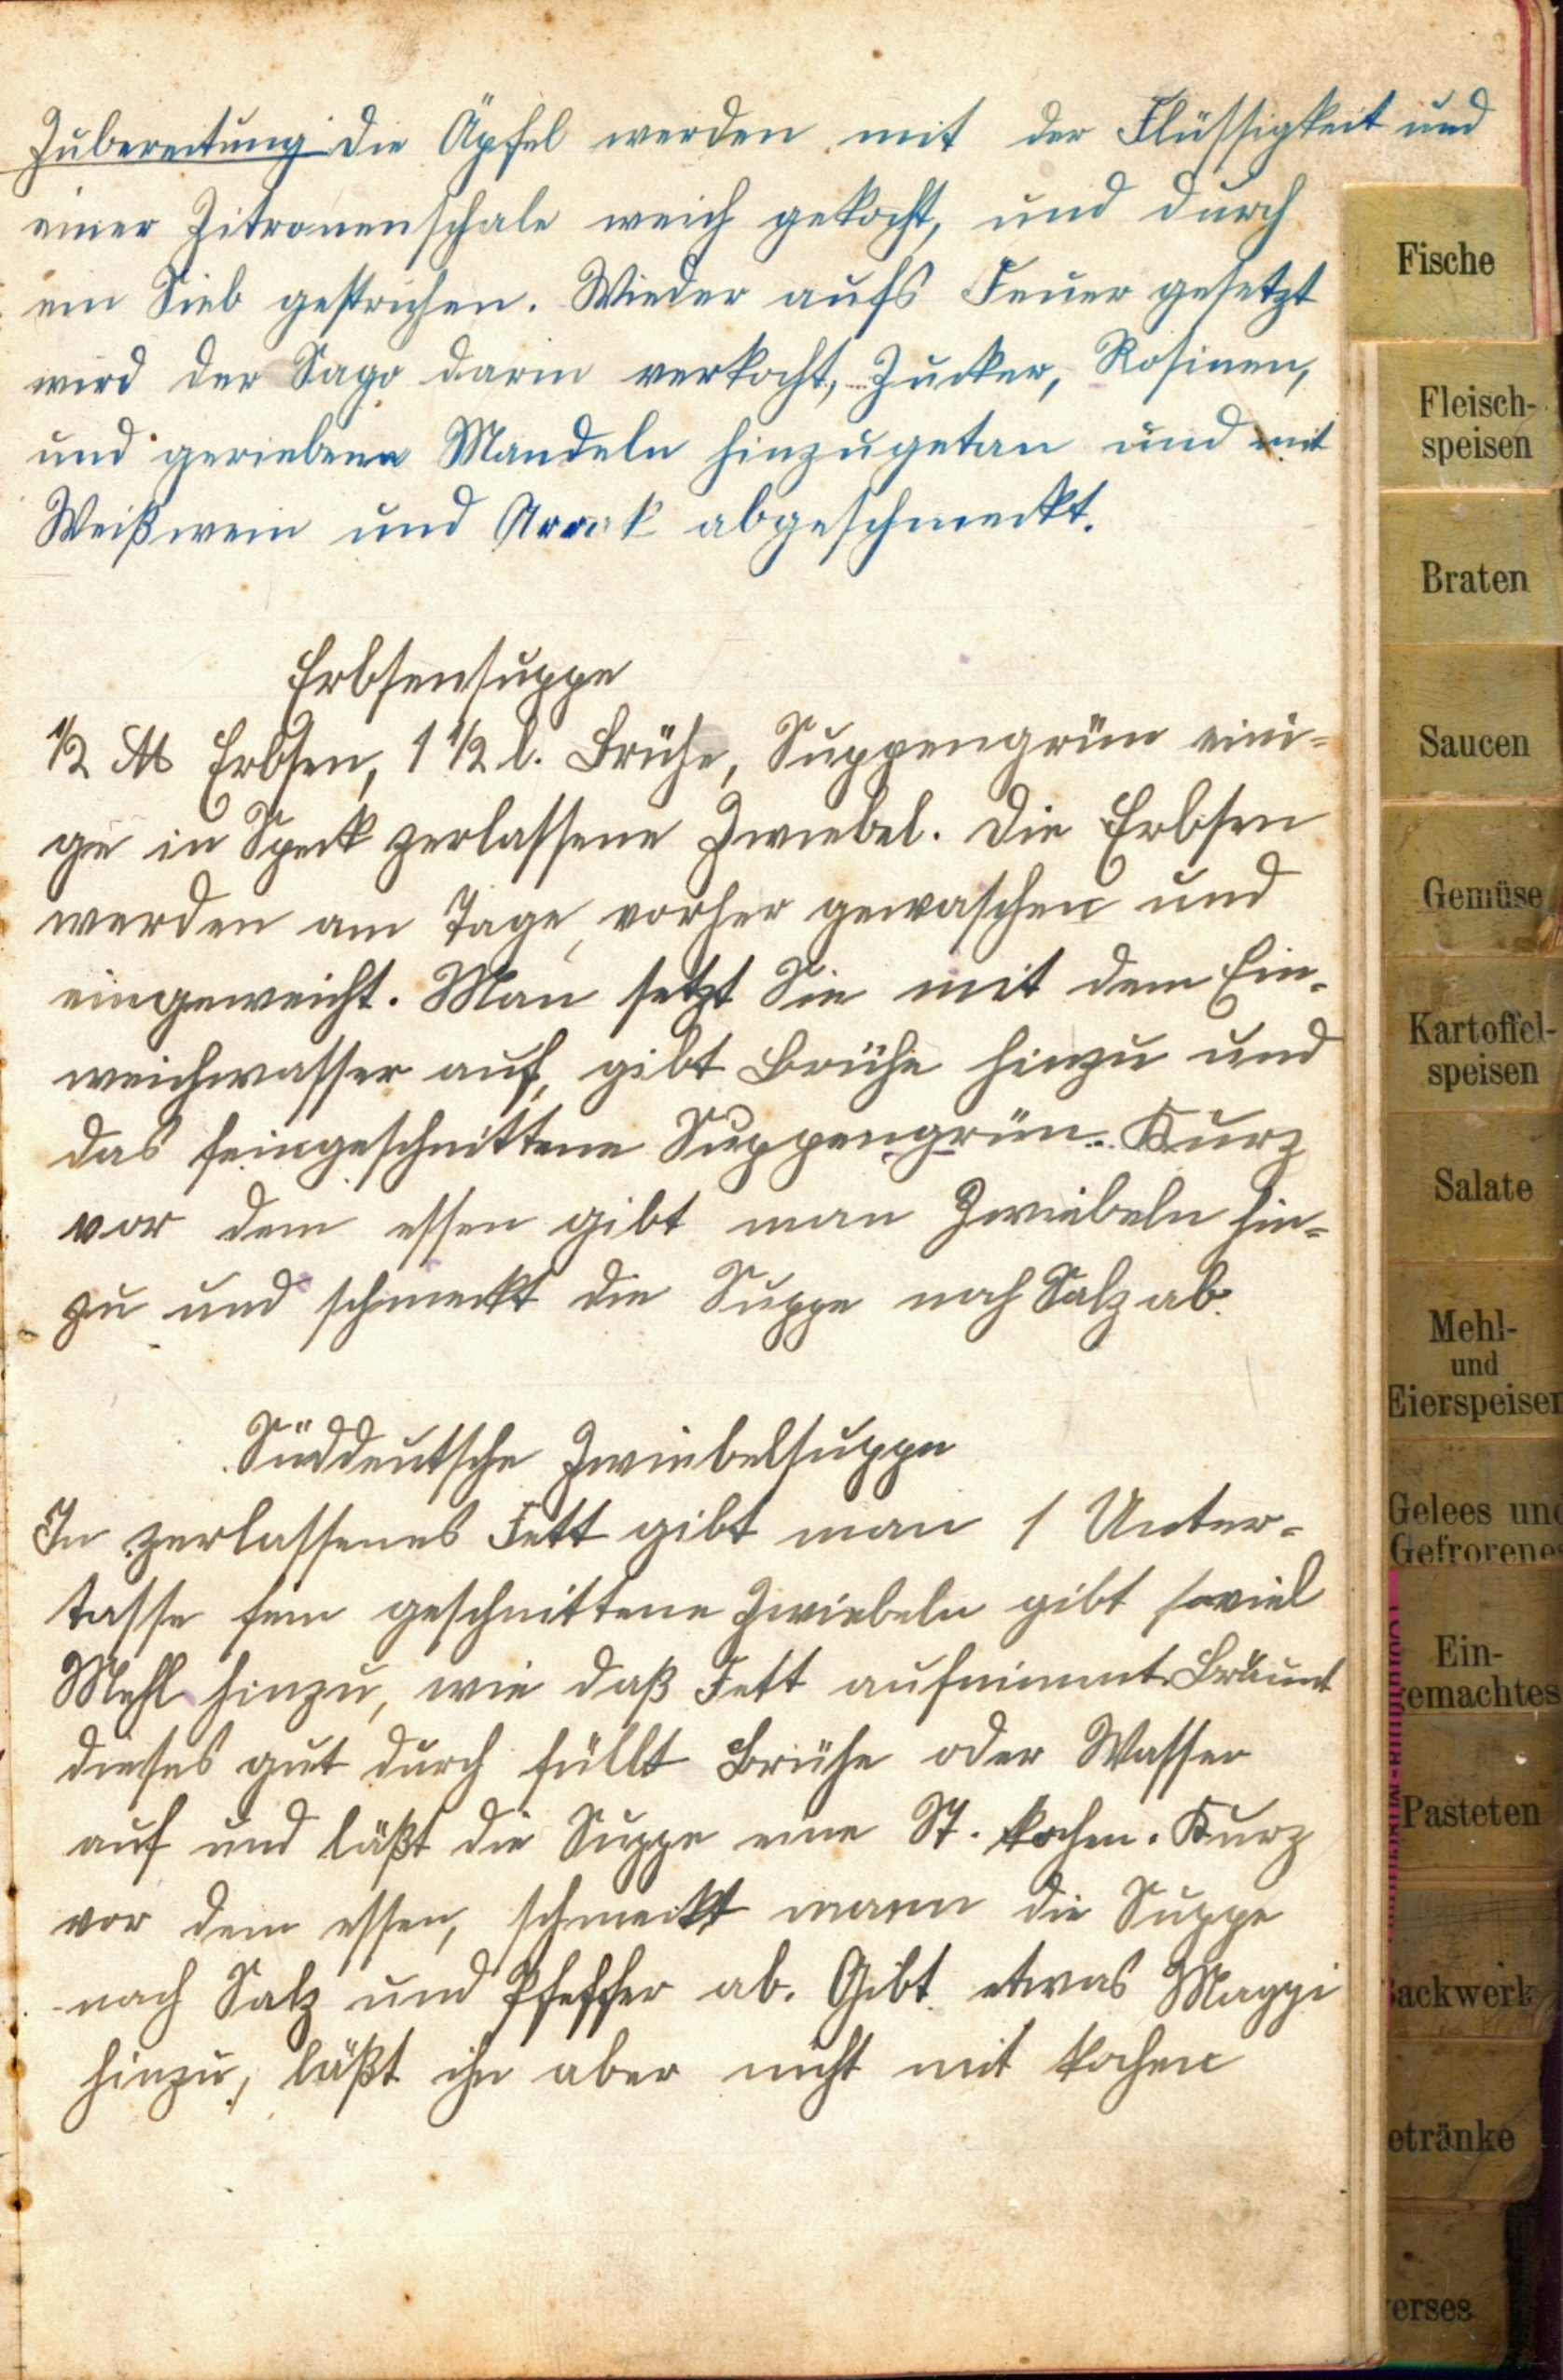 Zubereitung Die Äpfel werden mit der Flüssigkeit und
einer Zitronenschale weich gekocht, und durch
ein Sieb gestrichen. Wieder aufs Feuer gesetzt
wird der Sago darin verkocht, Zucker, Rosinen,
und geriebene Mandeln hinzugetan und mit
Weißwein und Arrak abgeschmeckt.
Erbsensuppe
1/2 ℔ Erbsen, 1 1/2 l. Brühe, Suppengrün eini-
ge in Speck zerlassene Zwiebel. Die Erbsen
werden am Tage vorher gewaschen und
eingeweicht. Man setzt Sie mit dem Ein-
weichwasser auf, gibt Brühe hinzu und
das feingeschnittene Suppengrün. Kurz
vor dem essen gibt man Zwiebeln hin-
zu und schmeckt die Suppe nach Salz ab.
Süddeutsche Zwiebelsuppe
In zerlassenes Fett gibt man 1 Unter-
tasse fein geschnittene Zwiebeln gibt soviel
Mehl hinzu, wie daß Fett aufnimmt. Bräunt
dieses gut durch füllt Brühe oder Wasser
auf und läßt die Suppe eine St. kochen. Kurz
vor dem essen, schmeckt mann die Suppe
nach Salz und Pfeffer ab. Gibt etwas Maggi
hinzu, läßt ihn aber nicht mit kochen
Fische
Fleisch-
speisen
Braten
Saucen
Gemüse
Kartoffel-
speisen
Salate
Mehl-
und
Eierspeisen
Gelees und
Gefrorenes
Ein-
gemachtes
Pasteten
Backwerk
etränke
erses